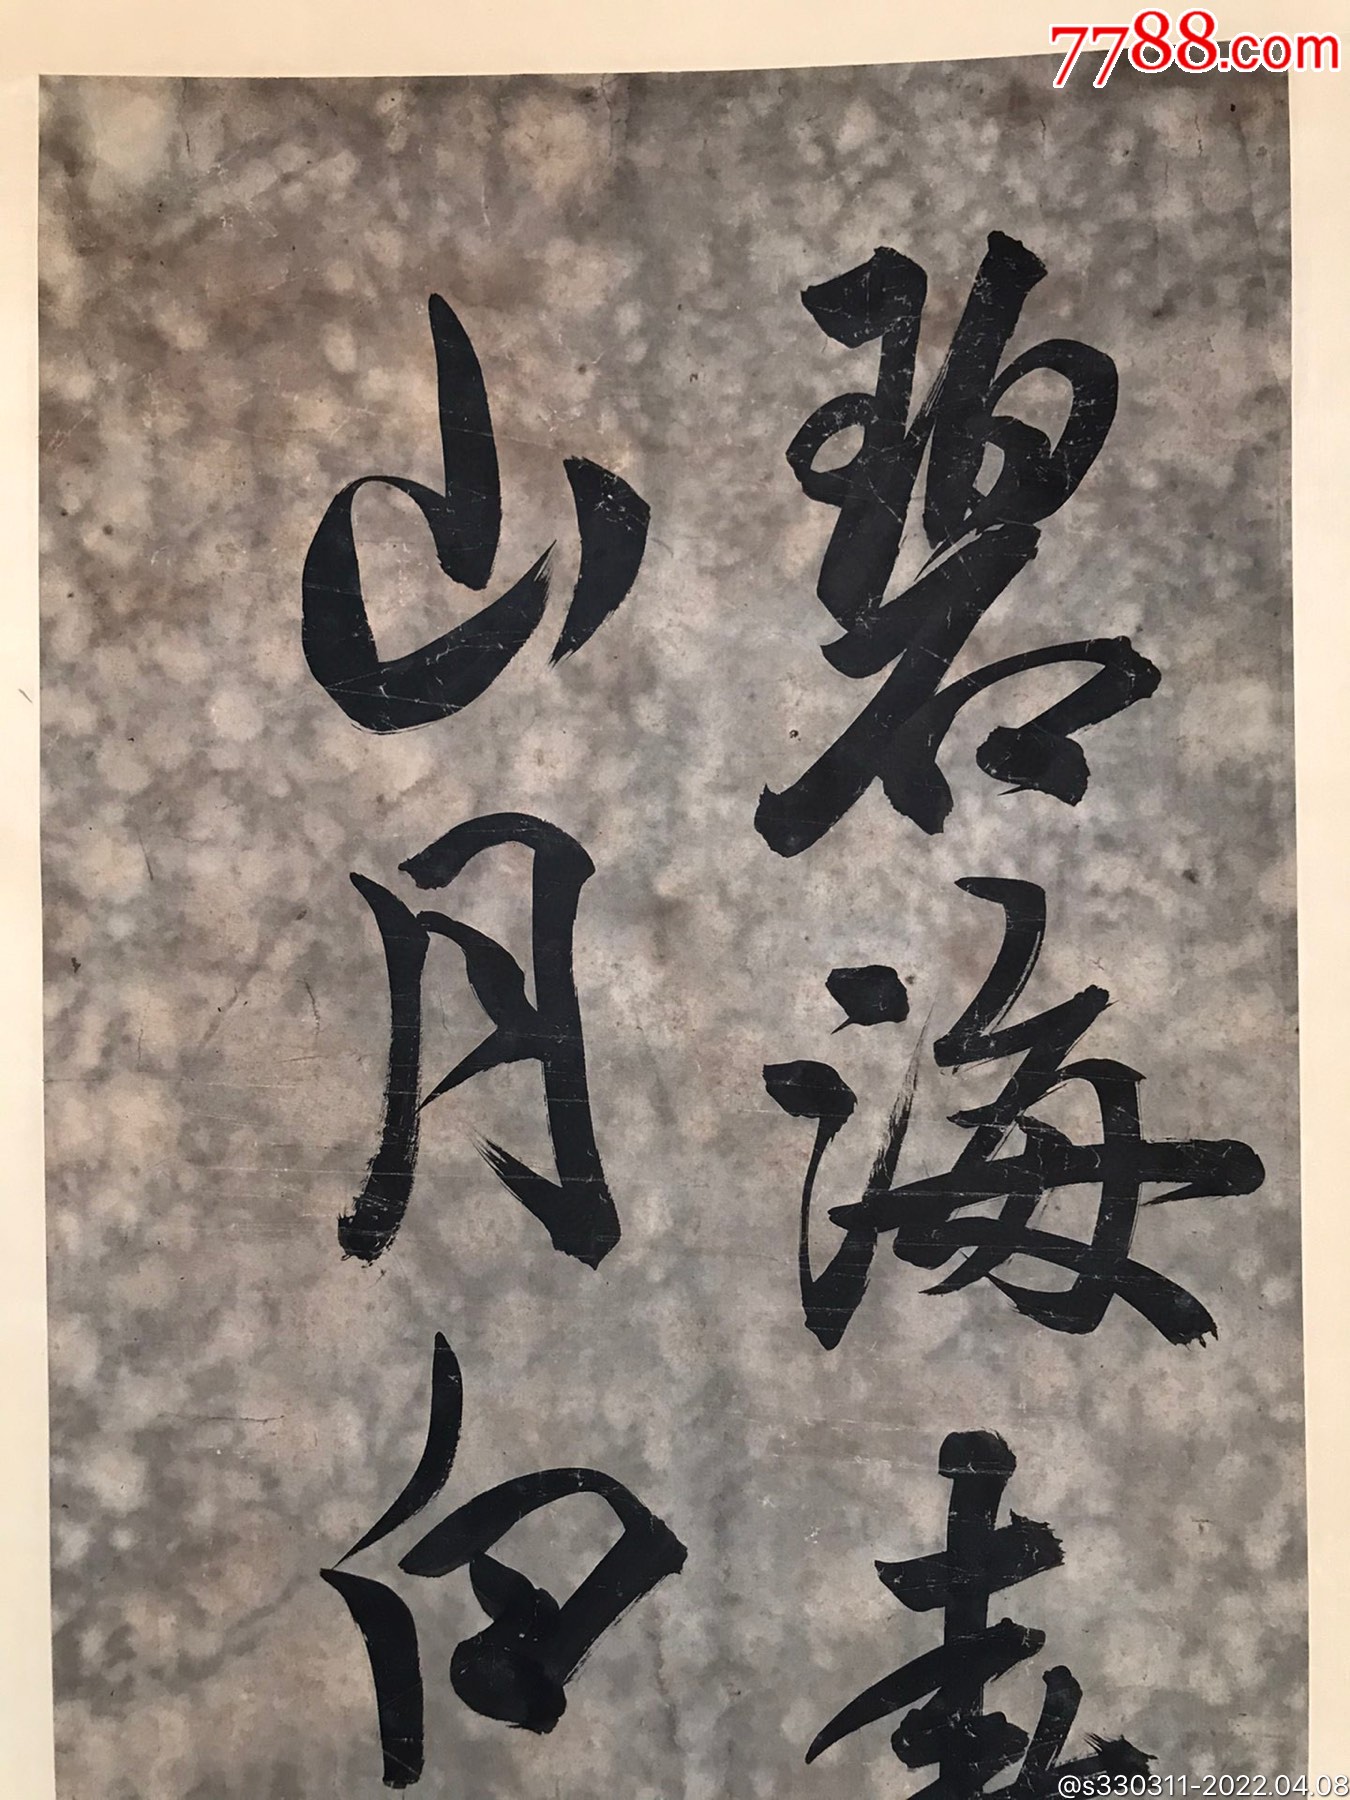 7788.com
碧海
山月白
@s330311-2022.04.08